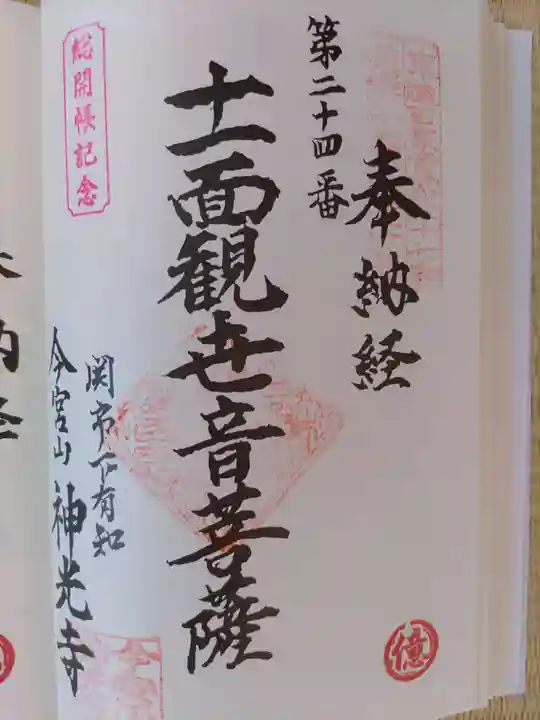 奉納経
第二十四番
十一面観世音菩薩
関市下有知
今宮山 神光寺
総開帳記念
億